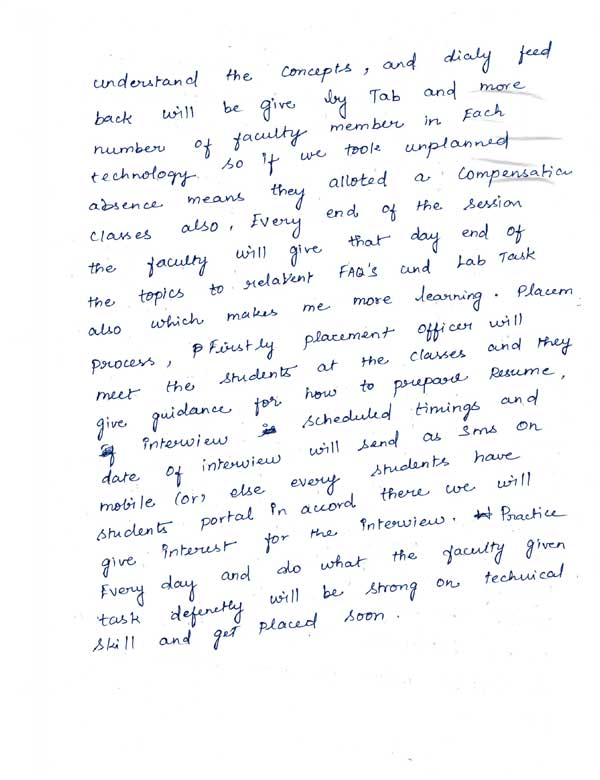 understand the concepts, and dialy feed
back will be give by Tab and more
number of faculty member in Each
technology. so if we took unplanned
absence means they alloted a compensation
classes also, Every end of the session
the faculty will give that day end of
the topics to relavent FAQ's and Lab Task
also which makes me more learning. Placem
process, Firstly placement officer will
meet the students at the classes and they
give guidance for how to prepare Resume,
interview scheduled timings and
date of interview will send as sms on
mobile (or) else every students have
students portal in accord there we will
give interest for the interview. Practice
Every day and do what the faculty given
task defenetly will be strong on technical
skill and get placed soon.